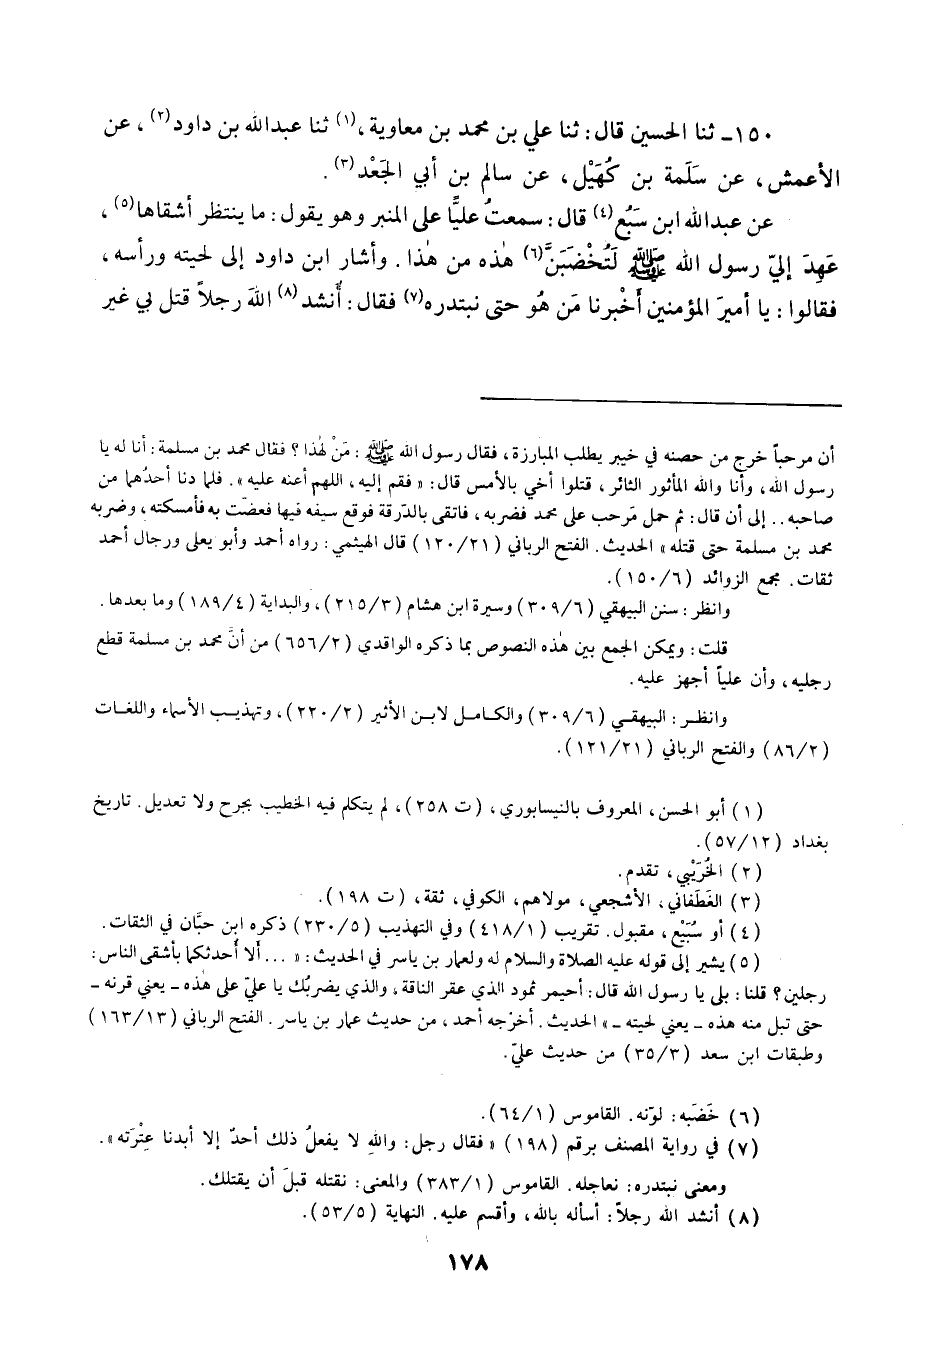 ١٥٠ـ ثنا الحسين قال: ثنا علي بن محمد بن معاوية،(١) ثنا عبدالله بن داود(٢)، عن
الأعمش، عن سَلَمة بن كُهَيْل، عن سالم بن أبي الجَعْد(٣).
عن عبدالله ابن سَبُع(٤) قال: سمعتُ عليًّا على المنبر وهو يقول: ما ينتظر أشقاها(٥)،
عَهِدَ إليّ رسول الله ﷺ لَتُخْضَبَنَّ(٦) هٰذه من هٰذا. وأشار ابن داود إلى لحيته ورأسه،
فقالوا: يا أميرَ المؤمنين أَخْبِرنا مَن هُو حتى نبتدره(٧) فقال: أَنشد(٨) اللهَ رجلاً قتل بي غير
أن مرحباً خرج من حصنه في خيبر يطلب المبارزة، فقال رسول الله ﷺ: مَنْ لهٰذا؟ فقال محمد بن مسلمة: أنا له يا
رسول الله، وأنا والله المأثور الثائر، قتلوا أخي بالأمس قال: «فقم إليه، اللهم أعنه عليه». فلما دنا أحدُهما من
صاحبه.. إلى أن قال: ثم حمل مَرحب على محمد فضربه، فاتقى بالدّرقة فوقع سيفه فيها فعضّت به فأمسكته، وضربه
محمد بن مسلمة حتى قتله» الحديث. الفتح الرباني (١٢٠/٢١) قال الهيثمي: رواه أحمد وأبو يعلى ورجال أحمد
ثقات. مجمع الزوائد (١٥٠/٦).
وانظر: سنن البيهقي (٣٠٩/٦) وسيرة ابن هشام (٢١٥/٣)، والبداية (١٨٩/٤) وما بعدها.
قلت: ويمكن الجمع بين هٰذه النصوص بما ذكره الواقدي (٦٥٦/٢) من أنَّ محمد بن مسلمة قطع
رجليه، وأن علياً أجهز عليه.
وانظر: البيهقي (٣٠٩/٦) والكامل لابن الأثير (٢٢٠/٢)، وتهذيب الأسماء واللغات
(٨٦/٢) والفتح الرباني (١٢١/٢١).
(١) أبو الحسن، المعروف بالنيسابوري، (ت ٢٥٨)، لم يتكلم فيه الخطيب بجرح ولا تعديل. تاريخ
بغداد (٥٧/١٢).
(٢) الخُرَيْبي، تقدم.
(٣) الغَطَفاني، الأشجعي، مولاهم، الكوفي، ثقة، (ت ١٩٨).
(٤) أو سُبَيْع، مقبول. تقريب (٤١٨/١) وفي التهذيب (٢٣٠/٥) ذكره ابن حبَّان في الثقات.
(٥) يشير إلى قوله عليه الصلاة والسلام له ولعمار بن ياسر في الحديث: «... ألا أحدثكما بأشقى الناس:
رجلين؟ قلنا: بلى يا رسول الله قال: أحيمر ثمود الذي عقر الناقة، والذي يضربُك يا عليّ على هٰذه ـ يعني قرنه ـ
حتى تبل منه هذه ـ يعني لحيته ـ» الحديث. أخرجه أحمد، من حديث عمار بن ياسر. الفتح الرباني (١٦٣/١٣)
وطبقات ابن سعد (٣٥/٣) من حديث عليّ.
(٦) خَضَبه: لوّنه. القاموس (٦٤/١).
(٧) في رواية المصنف برقم (١٩٨) «فقال رجل: واللهِ لا يفعلُ ذلك أحدٌ إلا أبدنا عِتْرَته».
ومعنى نبتدره: نعاجله. القاموس (٣٨٣/١) والمعنى: نقتله قبلَ أن يقتلك.
(٨) أنشد الله رجلاً: أسأله بالله، وأقسم عليه. النهاية (٥٣/٥).
١٧٨